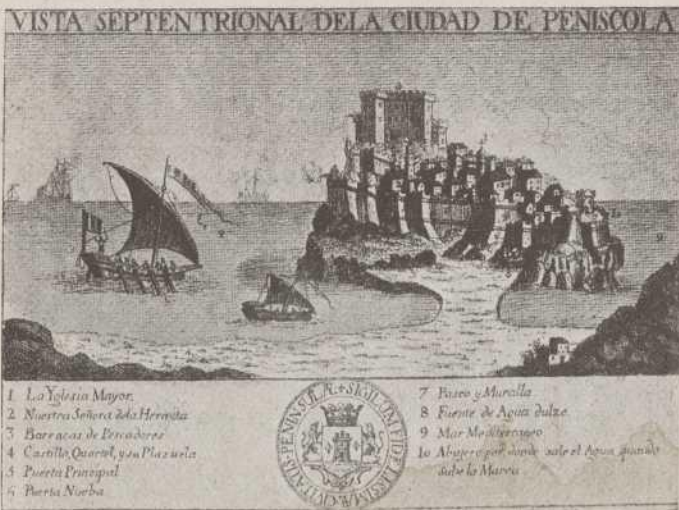 VISTA SEPTENTRIONAL DELA CIUDAD DE PEÑISCOLA
1 La Yglesia Mayor.
2 Nuestra Señora dela Hermita
3 Barracas de Pescadores
4 Castillo, Quartel, y su Plazuela
5 Puerta Principal
6 Puerta Nueba
SIGIL
CIVITATIS PENINSULÆ
7 Paseo y Muralla
8 Fuente de Agua dulze
9 Mar Mediterraneo
10 Abujero por donde sale el Agua quando
sube la Marea